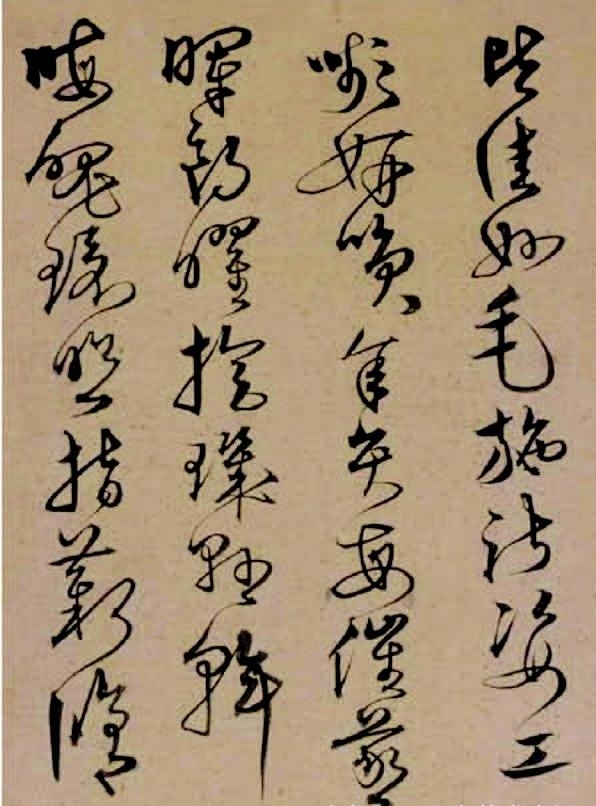 皆佳妙毛施淑姿工
嚬妍咲年矢每催羲
暉朗曜旋璣懸斡
晦魄環照指薪脩